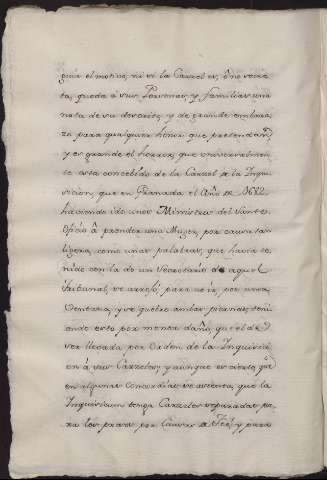 guir el motivo, ni si la Carzel es, ò no secre
ta, queda à sus Personas, y familias una
nota de su descredito, y de grande embara
zo para qualquier honor que pretendan,
y es grande el horror, que universalmen
te esta concebido de la Carzel de la Inqui
sicion, que en Granada el Año de 1682.
haviendo ido unos Ministros del Santo
Oficio à prender una Muger, por causa tan
ligera, como unas palabras, que havia te
nido con la de un Secretario de aquel
Tribunal, se arrojò, para no ir, por una
Ventana, y se quebro ambas piernas, teni
endo esto por menor daño, que el de
ser llevada por Orden de la Inquisici
on à sus Carzeles, y aunque es cierto, qe
en algunas Concordias se assienta, que la
Inquisicion tenga Carzeles separadas pa
ra los presos por Causas de Feé, y para